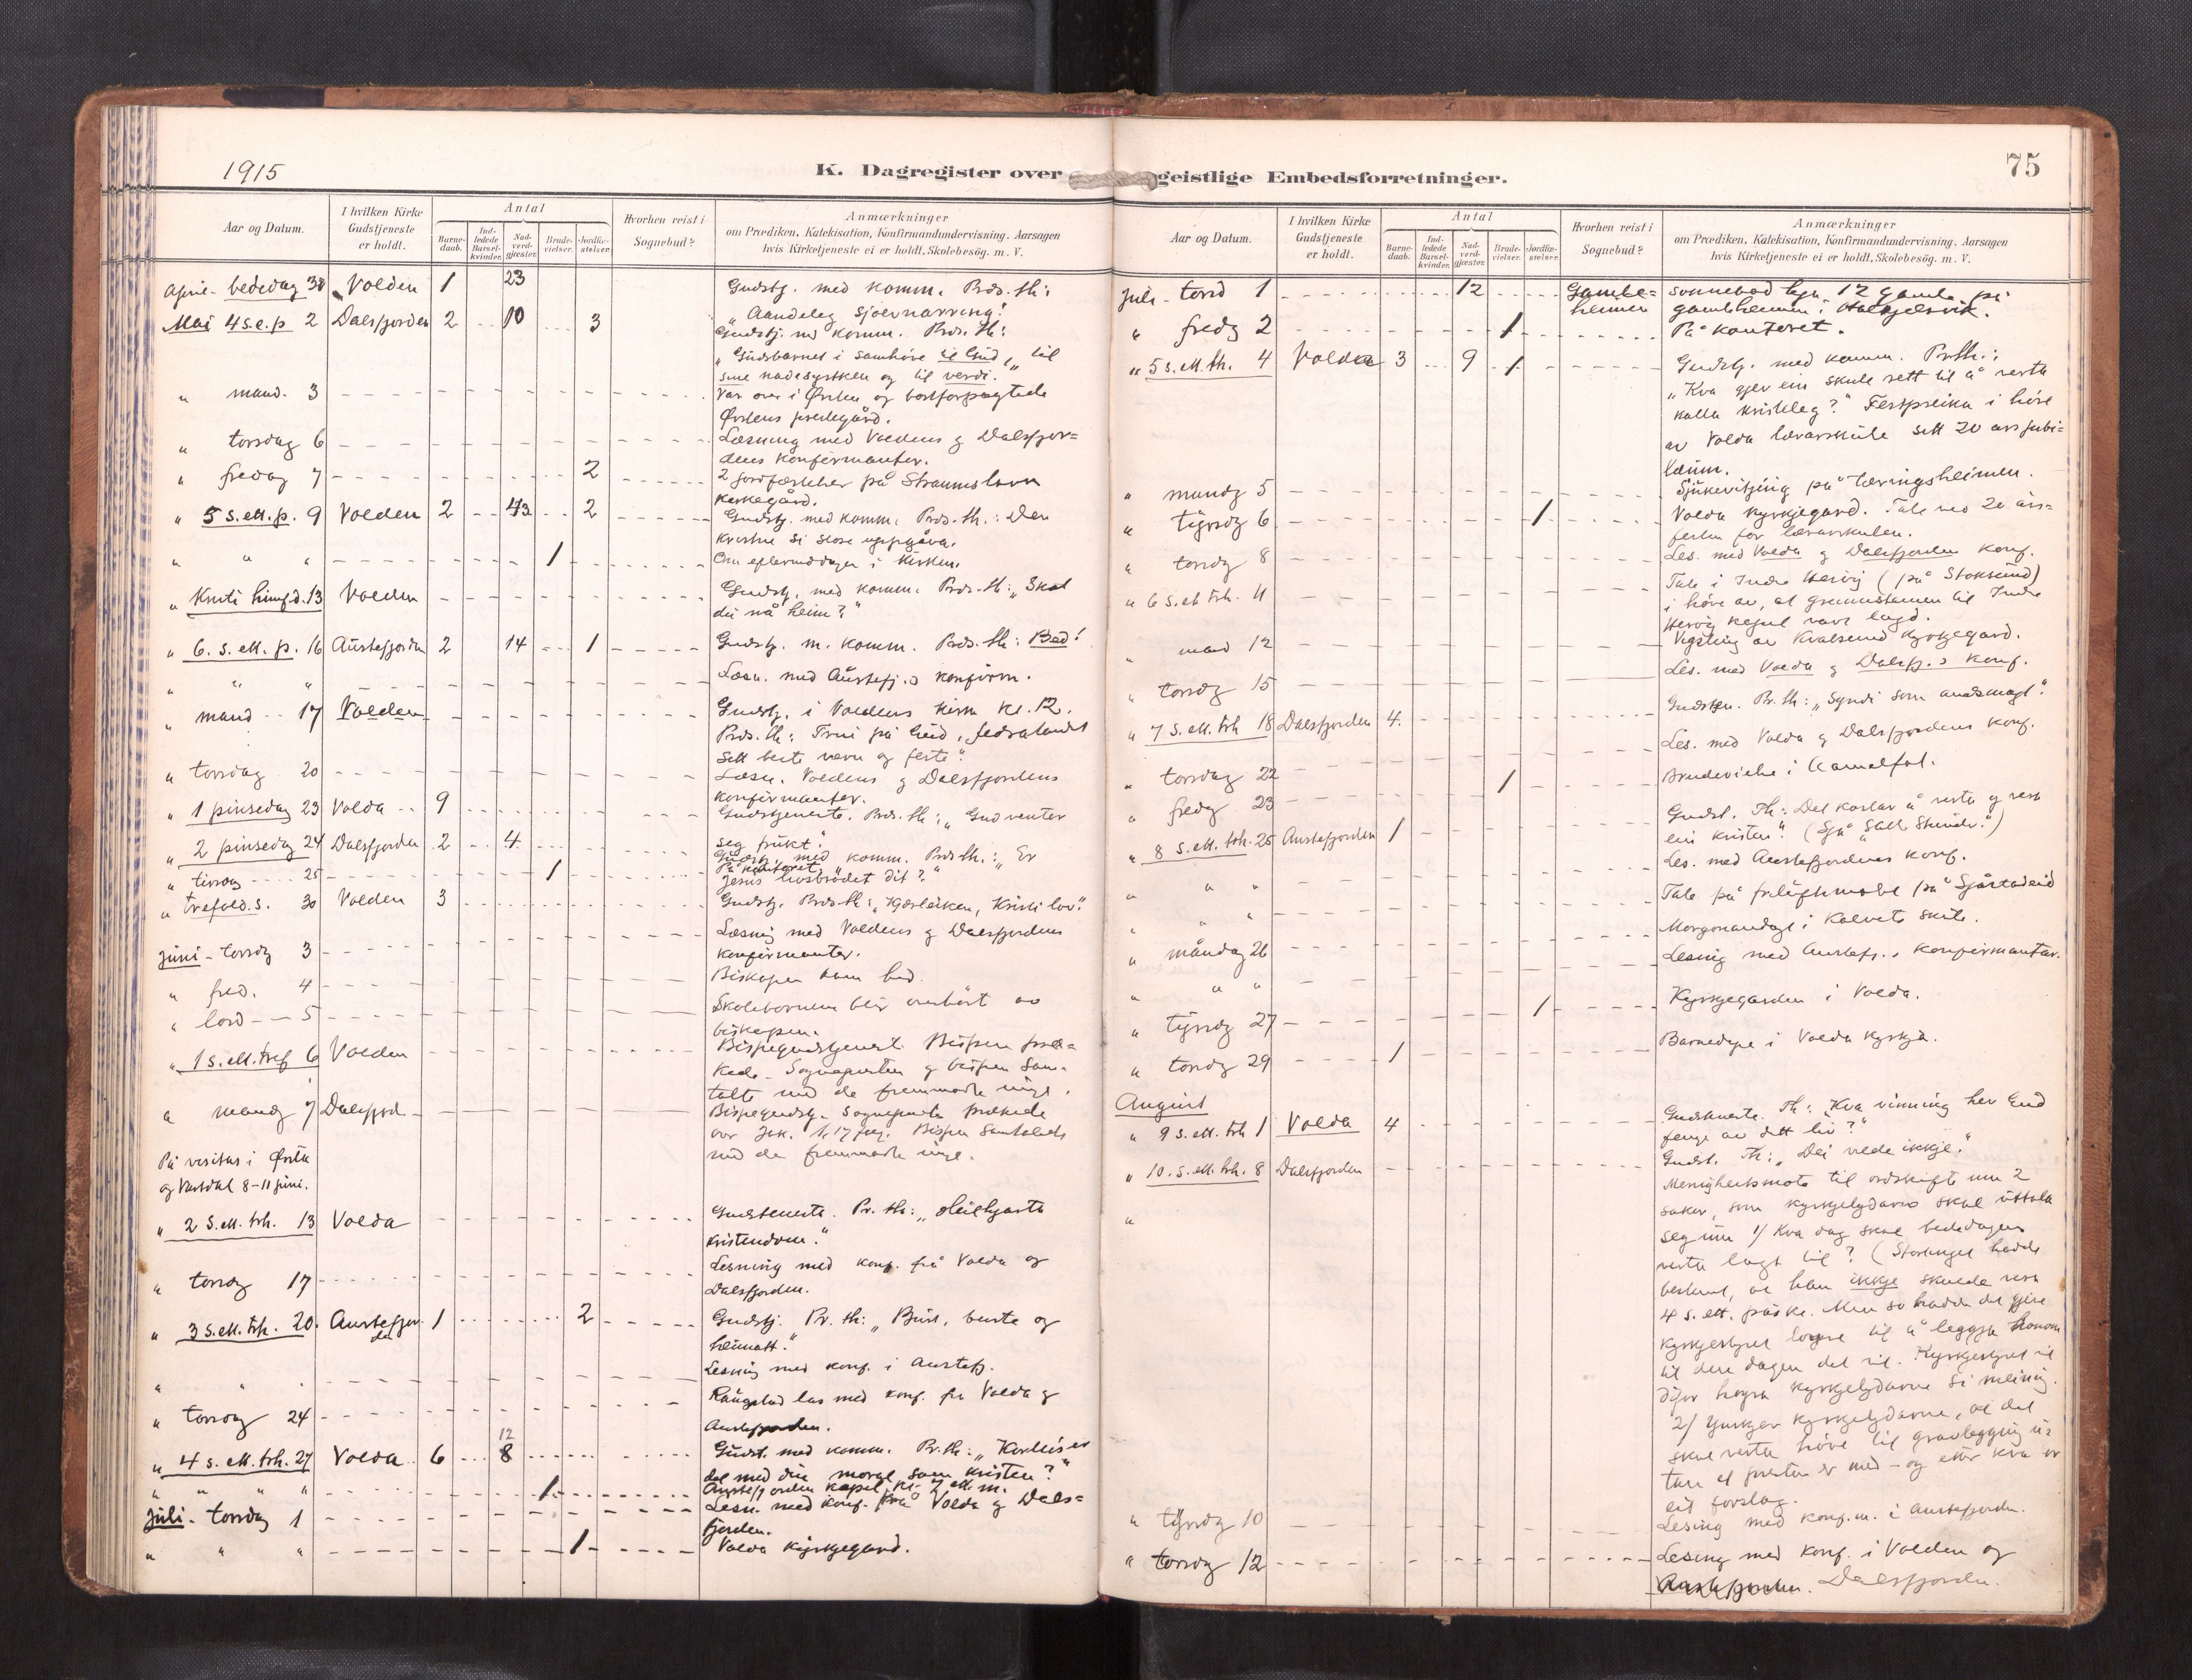 1915
K. Dagregister over
Aar og Datum.
I hvilken Kirke Gudstjeneste er holdt.
Antal
Barnedaab.
Indledede Barselkvinder.
Nadverdgjæster.
Brudevielser.
Jordfæstelser.
Hvorhen reist i Sognebud?
Anmærkninger
om Prædiken, Katekisation, Konfirmandundervisning, Aarsagen
hvis Kirketjeneste ei er holdt, Skolebesøg. m. V.
April - bededag 30 Volden 1 23 Gudstj. med komm. Præs. th:
"Aandeleg sjoelnæring".
Mai 4 s.e.p. 2 Dalsfjorden 2 10 3 Gudstj. m komm. Præs. th:
"Gudsbarnet i samhøve til Gud, til
sine nådesystken og til verdi.
" mand. 3 Var over i Ørsten og bortforpagtede
Ørstens prestegård.
" torsdag 6 Læsning med Voldens og Dalsfjor=
dens konfirmanter.
" fredag 7 2 2 jordfæstelser på Straumshavn
kirkegård.
" 5 s. ett. p. 9 Volden 2 43 2 Gudstj. med komm. Præs. th.: Den
kristne si store uppgåva.
" " " 1 Om eftermiddagen i kirken.
" Kristi himf.d. 13 Volden Gudstj. med komm. Præs. th: "Skal
du nå heim?"
" 6. s. ett. p. 16 Austefjorden 2 14 1 Gudstj. m. komm. Præs. th: Bed!
" " " Læsn. med Austefj.s konfirm.
" mand 17 Volden Gudstj. i Voldens kirke kl. 12.
Præs. th: Trui på Gud, fedralandet
sitt beste vern og feste."
" torsdag 20 Læsn. Voldens og Dalsfjordens
konfirmanter.
" 1 pinsedag 23 Volda 9 Gudstjeneste. Præs. th: "Gud venter
seg frukt."
" 2 pinsedag 24 Dalsfjorden 2 4 Gudstj. med komm. Præs. th.: "Er
Jesus livsbrødet dit?"
" tirsdag 25 1 På kontoret.
" trefold. s. 30 Volden 3 Gudstj. Præs. th: "Kjærleiken, Kristi lov."
Juni - torsdg 3 Læsning med Voldens og Dalsfjordens
konfirmanter.
" fred. 4 Biskopen kom hid.
" lørd 5 Skolebornene blev overhørt av
biskopen.
" 1 s. ett. tref 6 Volden Bispegudstjenest. Bispen præ=
kede. Sognepresten og bispen sam=
talte med de fremmøtte unge.
" mandg 7 Dalsfjord Bispegudstj. Sognepresten prækede
over Jak. 1, 17 flg. Bispen samtalede
med de fremmøtte unge.
På visitas i Ørsta
og Vartdal 8-11 juni.
" 2 s. ett. trh. 13 Volda Gudsteneste. Pr. th: "Heilhjarta
kristendom."
" torsdg 17 Lesning med konf. frå Volda og
Dalsfjorden.
" 3 s. ett. trh. 20. Austefjorden 1 2 Gudstj. Pr. th: "Burt, burte og
heimatt."
" " " Lesning med konf. i Austefj.
" torsdg 24 Raugstad las med konf. fra Volda og
Austefjorden.
" 4 s. ett. trh. 27 Volda 6 12 8 Gudst. med komm. Pr. th: "Korleis er
det med din moral som kristen?"
" " " " 1 Austefjorden kapel kl. 7 ett. m.
Juli - torsdag 1 Lesn. med konf. frå Volda og Dals=
fjorden.
" " " 1 Volda kyrkjegard.
75
geistlige Embedsforretninger.
Aar og Datum.
I hvilken Kirke Gudstjeneste er holdt.
Antal
Barnedaab.
Indledede Barselkvinder.
Nadverdgjæster.
Brudevielser.
Jordfæstelser.
Hvorhen reist i Sognebud?
Anmærkninger
om Prædiken, Katekisation, Konfirmandundervisning, Aarsagen
hvis Kirketjeneste ei er holdt, Skolebesøg. m. V.
Juli - torsd 1 12 Gamle=heimen sonnebod hjå 12 gamle på
gamleheimen i
" fredg 2 1 På kontoret.
" 5 s. ett. th. 4 Volda 3 9 1 Gudstj. med komm. Pr. th.:
"Kva gjev ein skule rett til å verta
kalla kristeleg?" Festpreika i høve
av Volda lærarskule sitt 20 års jubi=
læum.
" mandg 5 Sjukevitjing på læringsheimen.
" tysdg 6 1 Volda kyrkjegard. Tale ved 20 års=
festen for lærarskulen.
" torsdg 8 Les. med Volda og Dalsfjorden konf.
" 6 s. ett trh. 11 Tale i Indre Herøy (på Stoksund)
i høve av, at grunnsteinen til Indre
Herøy kapel vart lagd.
" mand 12 Vigsling av Kvalsund kyrkjegard.
" torsdg 15 Les. med Volda og Dalsfj.s konf.
" 7 s. ett. trh 18 Dalsfjorden 4 Gudsten. Pr. th: "Syndi som andsmagt."
" torsdag 22 Les. med Volda og Dalsfjordens konf.
" fredg 23 1 Brudevielse i
" 8 s. ett. trh. 25 Austefjorden 1 Gudst. Th: Det kostar å verta og vera
ein kristen."
" " " Les. med Austefjordens konf.
" " " Tale på friluftsmøte på
" måndag 26 Morgonandagt i Kalvatn skule.
" " " Lesing med Austefj.s konfirmantar.
" tysdg 27 1 Kyrkjegarden i Volda.
" torsdg 29 1 Barnedåpe i Volda kyrkja.
August
" 9 s. ett. trh 1 Volda 4 Gudsteneste. Th: "Kva vinning hev Gud
fenge av ditt liv?"
" 10. s. ett. trh. 8 Dalsfjorden Gudst. Th: "Dei vilde ikkje."
" Menighetsmøte til ordskifte um 2
saker, som kyrkjelydarne skal uttala
seg um 1/ Kva dag skal bededagen
verta lagt til? (Stortinget hadde
bestemt, at han ikkje skulde vera
4 s. ett. påske. Men so hadde det gjeve
kyrkjestyret løyve til å leggja honom
til den dagen det vil. Kyrkjestyret vil
difor høyra kyrkjelydarne si meining.
2/ Ynskjer kyrkjelydarne, at det
skal verta høve til gravlegging u=
tan at presten er med - og etter kva er
eit forslag.
" tysdg 10 Lesing med konf. m. i Austefjorden.
" torsdg 12 Lesing med konf. i Volden og
Austefjorden. Dalsfjorden.